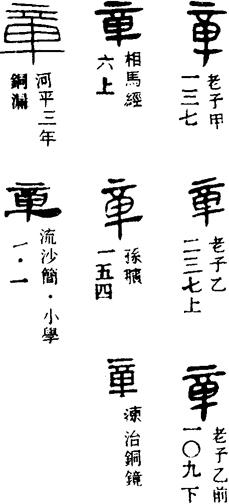 章
老子甲
一三七
章
老子乙
二三七上
章
老子乙前
一〇九下
章
相馬經
六上
章
孫臏
一五四
章
湅治銅鏡
章
河平三年
銅漏
章
流沙簡·小學
一·一